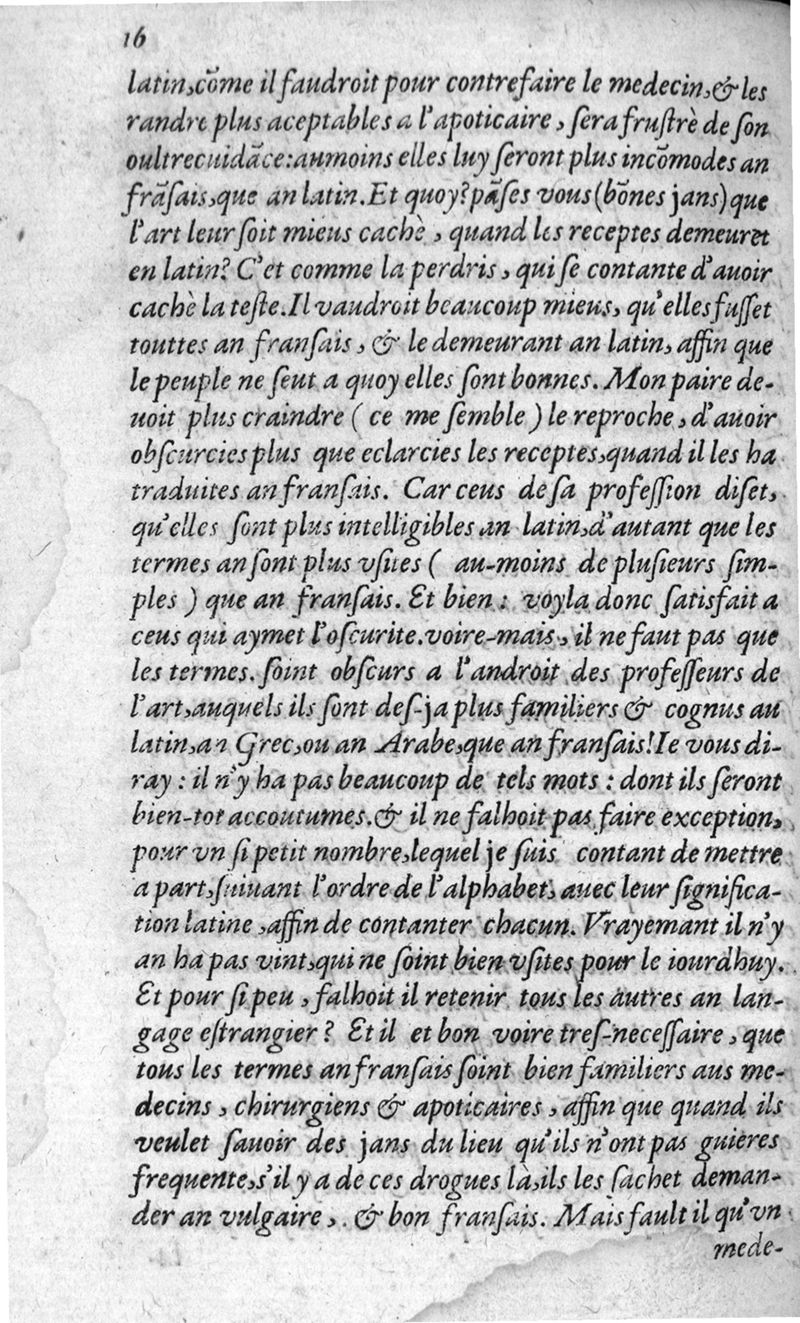 16
latin,cõme il faudroit pour contrefaire le medecin,& les
randre plus aceptables a l'apoticaire, ſera fruſtrè de ſon
oultrecuidãce: aumoins elles luy ſeront plus incõmodes an
frãſais,que an latin. Et quoy? pãſes vous (bõnes jans) que
l'art leur ſoit mieus cachè, quand les receptes demeuret
en latin? C'et comme la perdris, qui ſe contante d'auoir
cachè la teſte. Il vaudroit beaucoup mieus, qu'elles fuſſet
touttes an franſais, & le demeurant an latin, affin que
le peuple ne ſeut a quoy elles ſont bonnes. Mon paire de-
uoit plus craindre ( ce me ſemble ) le reproche, d'auoir
obſcurcies plus que eclarcies les receptes,quand il les ha
traduites an franſais. Car ceus de ſa profeſſion diſet,
qu'elles ſont plus intelligibles an latin,d'autant que les
termes an ſont plus vſites ( au-moins de pluſieurs ſim-
ples ) que an franſais. Et bien: voyla donc ſatisfait a
ceus qui aymet l'oſcurite. voire-mais, il ne faut pas que
les termes. ſoint obſcurs a l'androit des profeſſeurs de
l'art,auquels ils ſont deſ-ja plus familiers & cognus au
latin,an Grec,ou an Arabe,que an franſais! Ie vous di-
ray: il n'y ha pas beaucoup de tels mots: dont ils ſeront
bien-tot accoutumes.& il ne falhoit pas faire exception,
pour vn ſi petit nombre,lequel je ſuis contant de mettre
a part,ſuiuant l'ordre de l'alphabet, auec leur ſignifica-
tion latine ,affin de contanter chacun. Vrayemant il n'y
an ha pas vint,qui ne ſoint bien vſites pour le iourdhuy.
Et pour ſi peu, falhoit il retenir tous les autres an lan-
gage eſtrangier? Et il et bon voire treſ-neceſſaire, que
tous les termes an franſais ſoint bien familiers aus me-
decins, chirurgiens & apoticaires, affin que quand ils
veulet ſauoir des jans du lieu qu'ils n'ont pas guieres
frequente,s'il y a de ces drogues là,ils les ſachet deman-
der an vulgaire, . & bon franſais. Mais fault il qu'vn
mede-